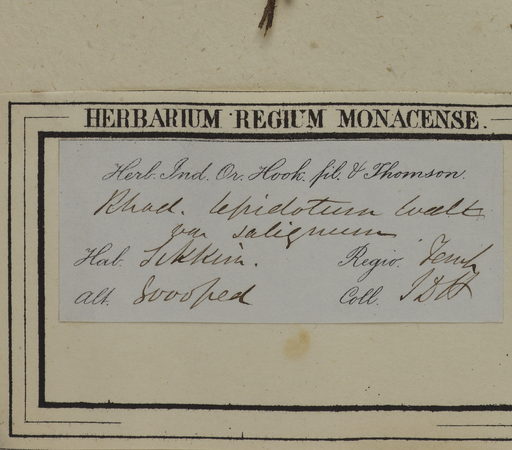 HERBARIUM REGIUM MONACENSE.
Herb. Ind. Or. Hook. fil. & Thomson.
Rhod. lepidotum Wall
var salignum
Hab. Sikkim. Regio. Temp
Alt. 8000 ped Coll. JDH